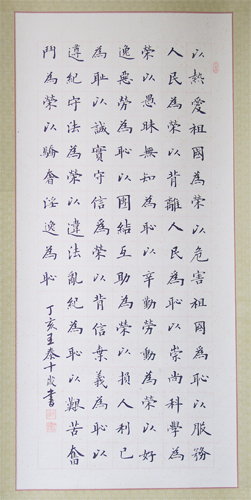 以熱愛祖國為榮以危害祖國為恥以服務
人民為榮以背離人民為恥以崇尚科學為
榮以愚昧無知為恥以辛勤勞動為榮以好
逸惡勞為恥以團結互助為榮以損人利己
為恥以誠實守信為榮以背信棄義為恥以
遵紀守法為榮以違法亂紀為恥以艱苦奮
鬥為榮以驕奢淫逸為恥
丁亥王泰十歲書